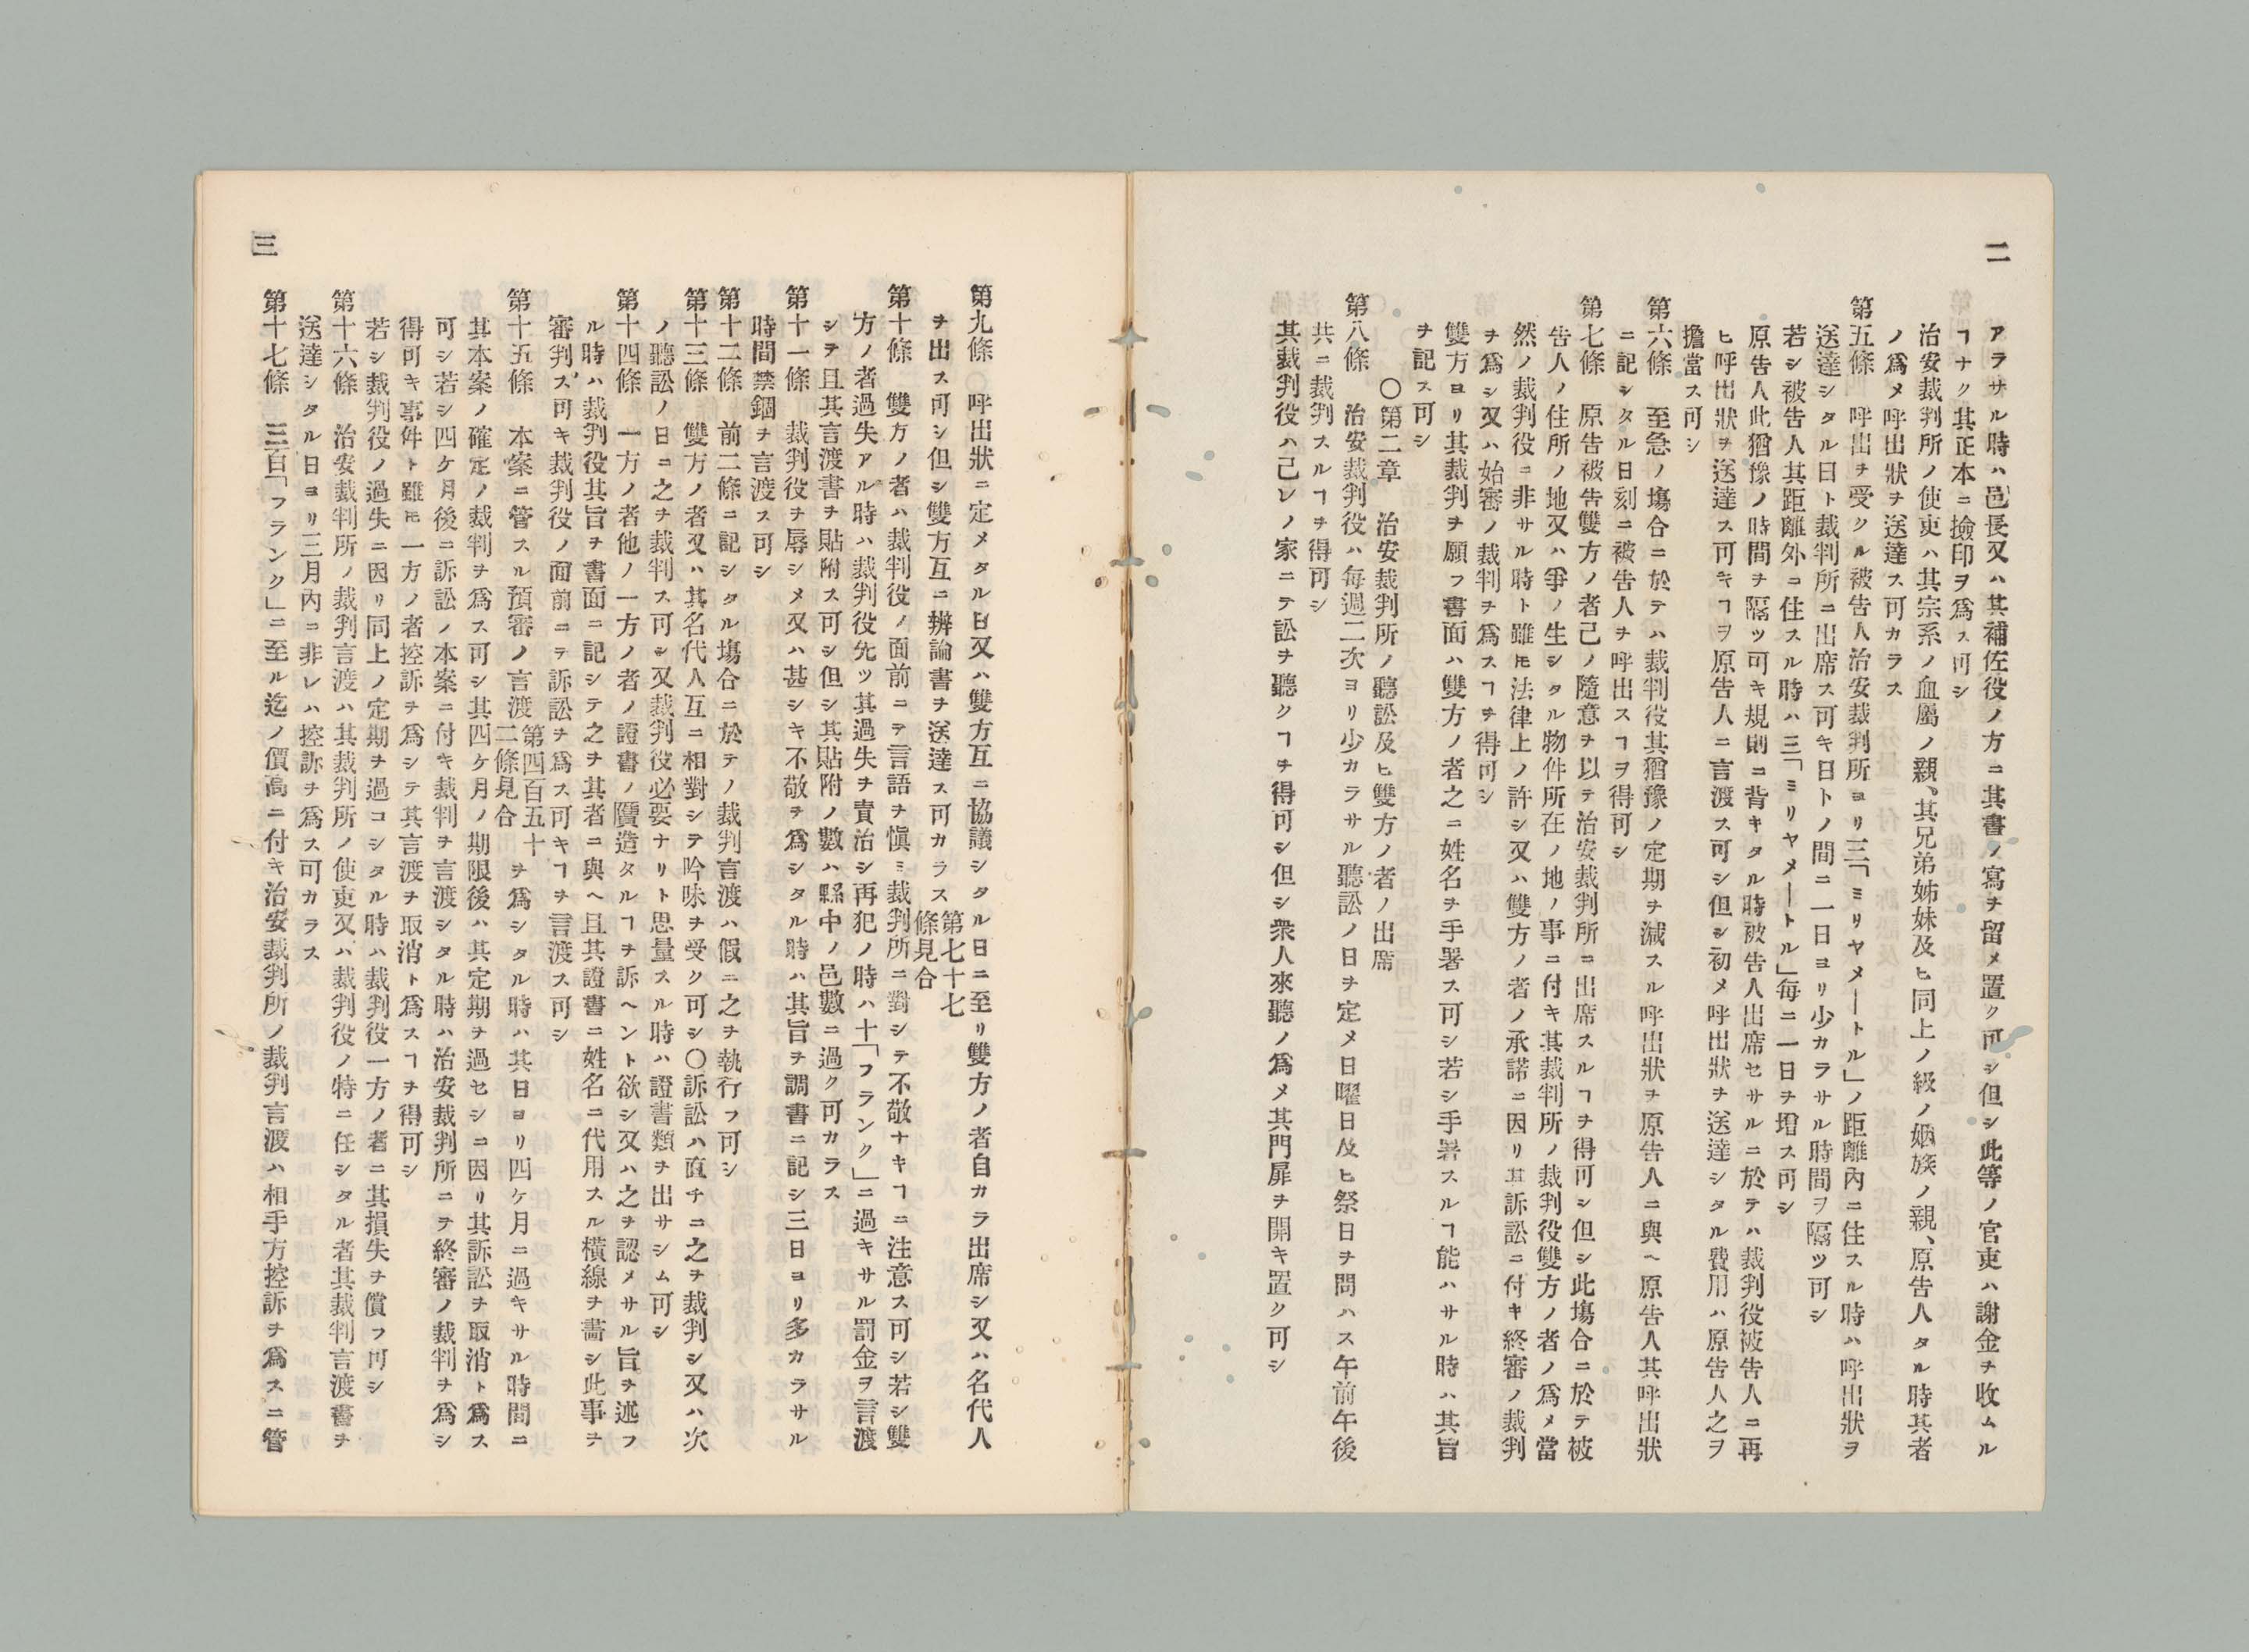 二
アラサル時ハ邑長又ハ其補佐役ノ方ニ其書ノ寫ヲ留メ置ク可シ但シ此等ノ官吏ハ謝金ヲ收ムル
ヿナク其正本ニ撿印ヲ爲ス可シ
治安裁判所ノ使吏ハ其宗系ノ血屬ノ親、其兄弟姊妹及ヒ同上ノ級ノ姻族ノ親、原告人タル時其者
ノ爲メ呼出狀ヲ送達ス可カラス
第五條　呼出ヲ受クル被告人治安裁判所ヨリ三「ミリヤメートル」ノ距離內ニ住スル時ハ呼出狀ヲ
送達シタル日ト裁判所ニ出席ス可キ日トノ間ニ一日ヨリ少カラサル時間ヲ隔ツ可シ
若シ被告人其距離外ニ住スル時ハ三「ミリヤメートル」每ニ一日ヲ增ス可シ
原告人此猶豫ノ時間ヲ隔ツ可キ規則ニ背キタル時被告人出席セサルニ於テハ裁判役被告人ニ再
ヒ呼出狀ヲ送達ス可キヿヲ原告人ニ言渡ス可シ但シ初メ呼出狀ヲ送達シタル費用ハ原告人之ヲ
擔當ス可シ
第六條　至急ノ塲合ニ於テハ裁判役其猶豫ノ定期ヲ減スル呼出狀ヲ原告人ニ與ヘ原告人其呼出狀
ニ記シタル日刻ニ被告人ヲ呼出スヿヲ得可シ
第七條　原告被告雙方ノ者己ノ隨意ヲ以テ治安裁判所ニ出席スルヿヲ得可シ但シ此塲合ニ於テ被
告人ノ住所ノ地又ハ爭ノ生シタル物件所在ノ地ノ事ニ付キ其裁判所ノ裁判役雙方ノ者ノ爲メ當
然ノ裁判役ニ非サル時ト雖𪜈法律上ノ許シ又ハ雙方ノ者ノ承諾ニ因リ其訴訟ニ付キ終審ノ裁判
ヲ爲シ又ハ始審ノ裁判ヲ爲スヿヲ得可シ
雙方ヨリ其裁判ヲ願フ書面ハ雙方ノ者之ニ姓名ヲ手署ス可シ若シ手署スルヿ能ハサル時ハ其旨
ヲ記ス可シ
〇第二章　治安裁判所ノ聽訟及ヒ雙方ノ者ノ出席
第八條　治安裁判役ハ每週二次ヨリ少カラサル聽訟ノ日ヲ定メ日曜日及ヒ祭日ヲ問ハス午前午後
共ニ裁判スルヿヲ得可シ
其裁判役ハ己レノ家ニテ訟ヲ聽クヿヲ得可シ但シ衆人來聽ノ爲メ其門扉ヲ開キ置ク可シ
第九條〇呼出狀ニ定メタル日又ハ雙方互ニ協議シタル日ニ至リ雙方ノ者自カラ出席シ又ハ名代人
ヲ出ス可シ但シ雙方互ニ辨論書ヲ送達ス可カラス第七十七條見合
第十條　雙方ノ者ハ裁判役ノ面前ニテ言語ヲ愼ミ裁判所ニ對シテ不敬ナキヿニ注意ス可シ若シ雙
方ノ者過失アル時ハ裁判役先ツ其過失ヲ責治シ再犯ノ時ハ十「フランク」ニ過キサル罰金ヲ言渡
シテ且其言渡書ヲ貼附ス可シ但シ其貼附ノ數ハ縣中ノ邑數ニ過ク可カラス
第十一條　裁判役ヲ辱シメ又ハ甚シキ不敬ヲ爲シタル時ハ其旨ヲ調書ニ記シ三日ヨリ多カラサル
時間禁錮ヲ言渡ス可シ
第十二條　前二條ニ記シタル塲合ニ於テノ裁判言渡ハ假ニ之ヲ執行フ可シ
第十三條　雙方ノ者又ハ其名代人互ニ相對シテ吟味ヲ受ク可シ〇訴訟ハ直チニ之ヲ裁判シ又ハ次
ノ聽訟ノ日ニ之ヲ裁判ス可シ又裁判役必要ナリト思量スル時ハ證書類ヲ出サシム可シ
第十四條　一方ノ者他ノ一方ノ者ノ證書ノ贋造タルヿヲ訴ヘント欲シ又ハ之ヲ認メサル旨ヲ述フ
ル時ハ裁判役其旨ヲ書面ニ記シテ之ヲ其者ニ與ヘ且其證書ニ姓名ニ代用スル橫線ヲ畵シ此事ヲ
審判ス可キ裁判役ノ面前ニテ訴訟ヲ爲ス可キヿヲ言渡ス可シ
第十五條　本案ニ管スル預審ノ言渡第四百五十二條見合ヲ爲シタル時ハ其日ヨリ四ケ月ニ過キサル時間ニ
其本案ノ確定ノ裁判ヲ爲ス可シ其四ケ月ノ期限後ハ其定期ヲ過セシニ因リ其訴訟ヲ取消ト爲ス
可シ若シ四ケ月後ニ訴訟ノ本案ニ付キ裁判ヲ言渡シタル時ハ治安裁判所ニテ終審ノ裁判ヲ爲シ
得可キ事件ト雖𪜈一方ノ者控訴ヲ爲シテ其言渡ヲ取消ト爲スヿヲ得可シ
若シ裁判役ノ過失ニ因リ同上ノ定期ヲ過コシタル時ハ裁判役一方ノ者ニ其損失ヲ償フ可シ
第十六條　治安裁判所ノ裁判言渡ハ其裁判所ノ使吏又ハ裁判役ノ特ニ任シタル者其裁判言渡書ヲ
送達シタル日ヨリ三月內ニ非レハ控訴ヲ爲ス可カラス
第十七條　三百「フランク」ニ至ル迄ノ價高ニ付キ治安裁判所ノ裁判言渡ハ相手方控訴ヲ爲スニ管
三